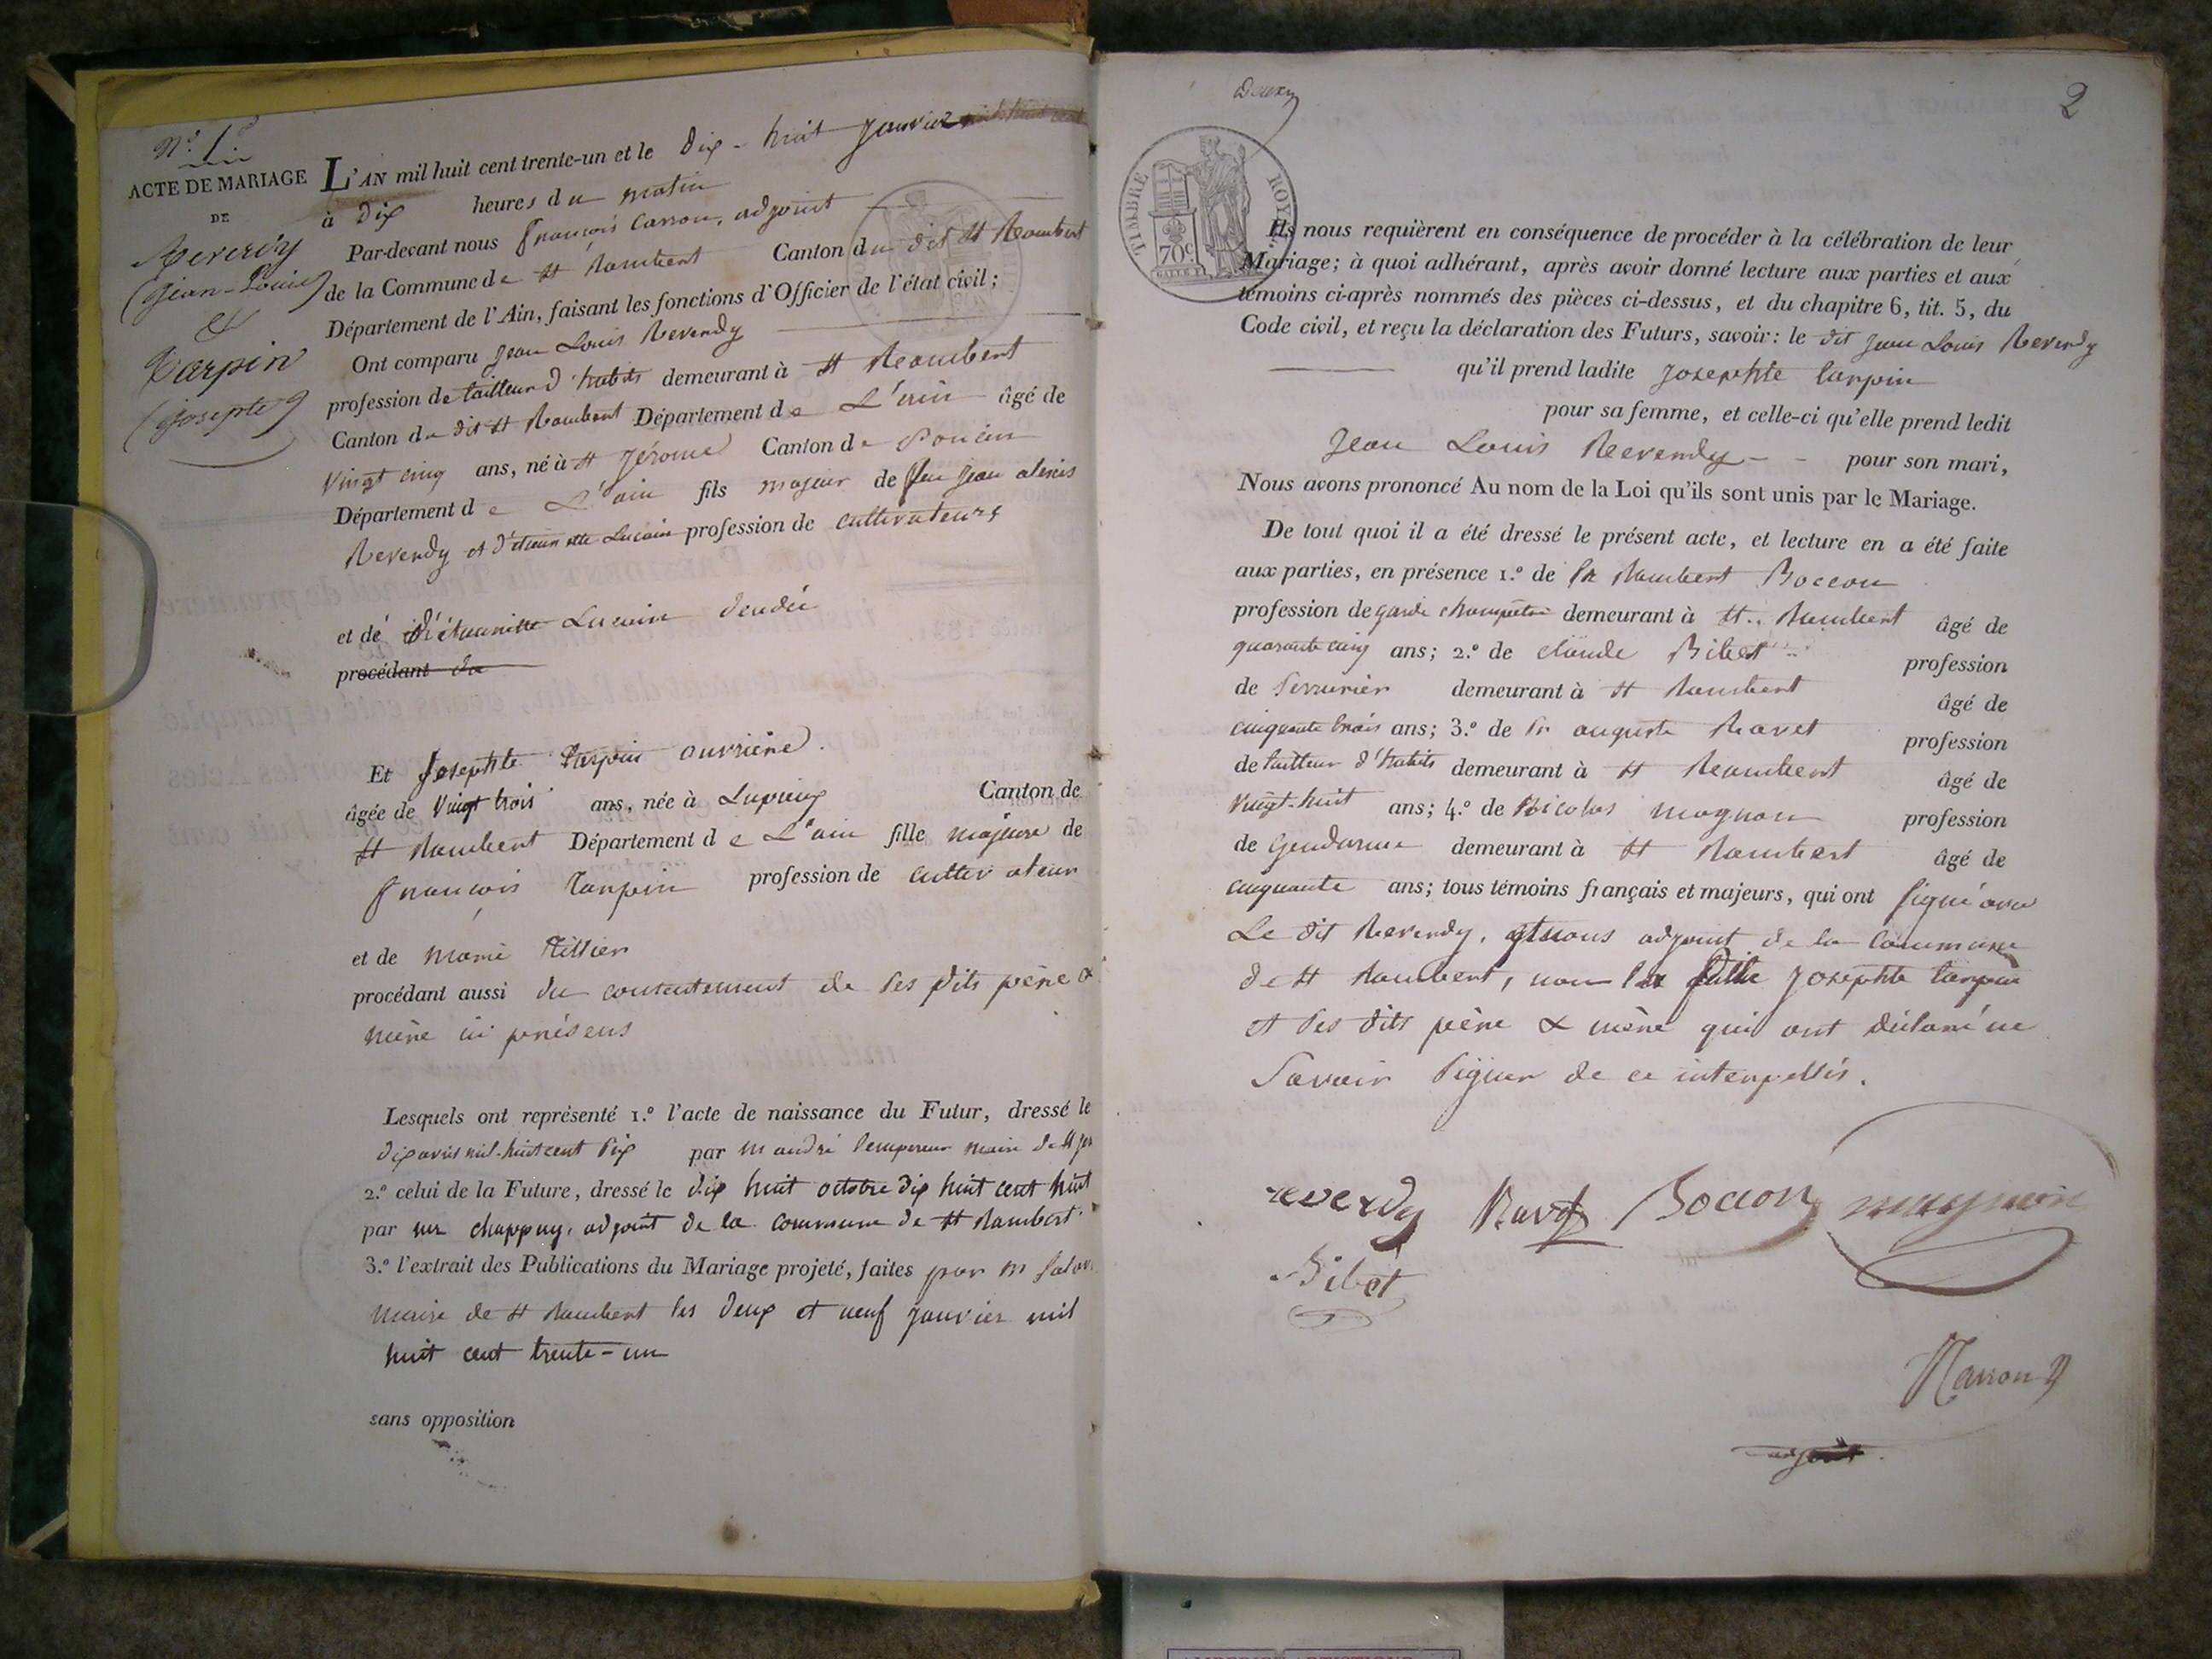 N.º 1.er
ACTE DE MARIAGE
DE
Reverdy
(Jean-Louis)
&
Tarpin
(Josephte)
L'AN mil huit cent trente-un et le dix-huit janvier
à dix heures du matin
Par-devant nous françois Carron, adjoint
de la Commune de St Rambert Canton du dit St Rambert
Département de l'Ain, faisant les fonctions d'Officier de l'état civil;
Ont comparu jean Louis Reverdy
profession de tailleur d'habits demeurant à St Rambert
Canton du dit St Rambert Département de L'ain âgé de
vingt cinq ans, né à St Jérome Canton de Poncin
Département de L'ain fils majeur de feu jean
Reverdy et d'étiennette Lucain profession de cultivateurs
et dé d'étiennette Lucain
procédant du
Et Josephte Tarpin ouvrière.
âgée de vingt trois ans, née à Lupieu Canton de
St Rambert Département de L'ain fille majeure de
françois Tarpin profession de cultivateur
et de marie Tissier
procédant aussi du consentement de ses dits père &
mère ici présens
Lesquels ont représenté 1.º l'acte de naissance du Futur, dressé le
mil-huit cent par m andré Lempereur maire de St
2.º celui de la Future, dressé le dix huit octobre dix huit cent huit
par mr chappuy, adjoint de la commune de St Rambert.
3.º l'extrait des Publications du Mariage projeté, faites par m
maire de St Rambert les deux et neuf janvier mil
huit cent trente-un
sans opposition
Deux
2
TIMBRE ROYAL
70c
Ils nous requièrent en conséquence de procéder à la célébration de leur
Mariage; à quoi adhérant, après avoir donné lecture aux parties et aux
témoins ci-après nommés des pièces ci-dessus, et du chapitre 6, tit. 5, du
Code civil, et reçu la déclaration des Futurs, savoir: le dit Jean Louis Reverdy
qu'il prend ladite Josephte Tarpin
pour sa femme, et celle-ci qu'elle prend ledit
Jean Louis Reverdy - - pour son mari,
Nous avons prononcé Au nom de la Loi qu'ils sont unis par le Mariage.
De tout quoi il a été dressé le présent acte, et lecture en a été faite
aux parties, en présence 1.º de Sr Rambert Boccon
profession de garde champêtre demeurant à St. Rambert âgé de
quarante cinq ans; 2.º de claude Bibet profession
de serrurier demeurant à St Rambert âgé de
cinquante trois ans; 3.º de Sr auguste Ravet profession
de tailleur d'habits demeurant à St Rambert âgé de
vingt-huit ans; 4.º de Nicolas magnon profession
de Gendarme demeurant à St Rambert âgé de
cinquante ans; tous témoins français et majeurs, qui ont signé avec
Le dit Reverdy, et nous adjoint de la commune
de St Rambert, non la dite Josephte tarpin
et ses dits père & mère qui ont déclaré ne
Savoir signer de ce interpellés.
reverdy Ravet Boccon magnon
Bibet
Carron
adjoint.